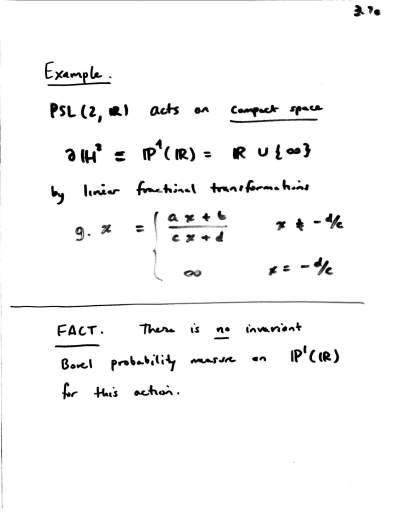 3.70
Example.
PSL(2, ℝ) acts on compact space
∂ℍ² ≡ ℙ¹(ℝ) = ℝ ∪ {∞}
by linear fractional transformations
g. x = { (ax + b)/(cx + d)  x ≠ -d/c
∞  x = -d/c
FACT. There is no invariant
Borel probability measure on ℙ¹(ℝ)
for this action.